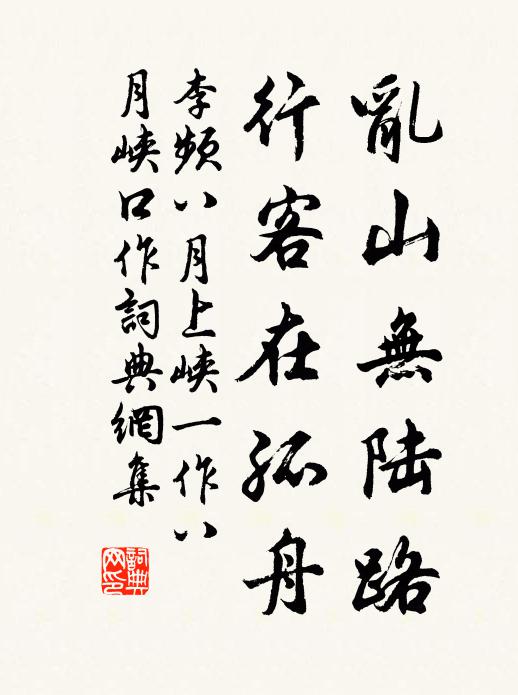 亂山無陆路
行客在孤舟
李頻八月上峽一作八
月峽口作詞典網集
詞典
网印